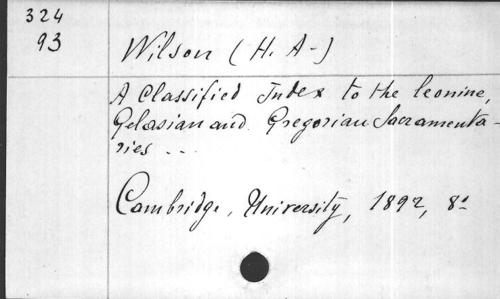 324
93
Wilson (H. A-)
A Classified Index to the leonine,
Gelasian and Gregorian Sacramenta-
ries ...
Cambridge, University, 1892, 8°